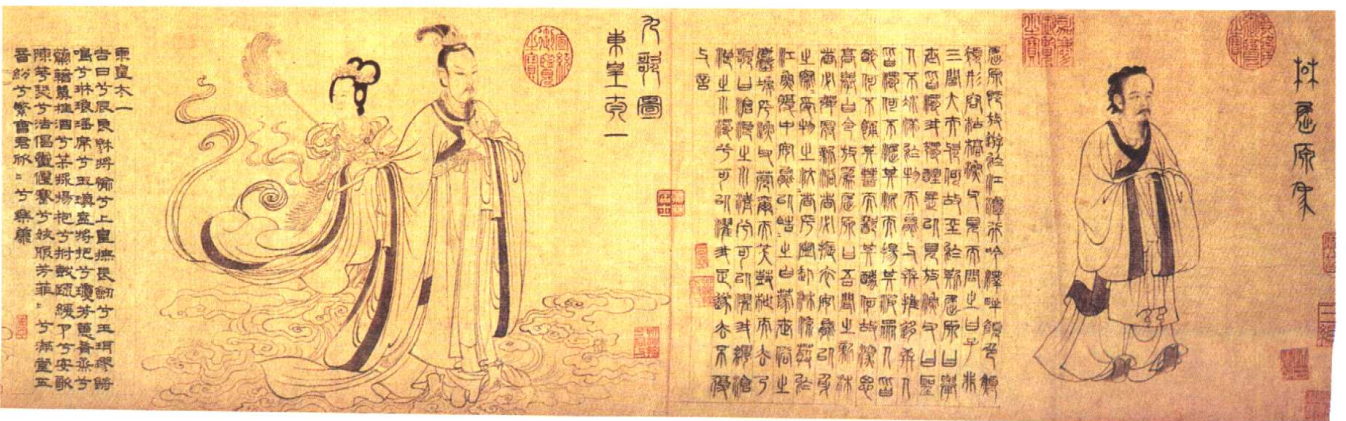 屈原象
屈原既放游於江潭行吟澤畔顏色顦
顇形容枯槁漁父見而問之曰子非
三閭大夫與何故至於斯屈原曰舉
世皆濁我獨醒是以見放漁父曰聖
人不凝滯於物而能與世推移舉世皆
濁何不淈其泥而揚其波眾人皆
醉何不餔其糟而歠其醨何故深思
高舉自令放為屈原曰吾聞之新沐
者必彈冠新浴者必振衣安能以身
之察察受物之汶汶者乎寧赴湘流葬於
江魚腹中安能以皓皓之白蒙世俗之
塵埃乎漁父莞爾而笑鼓枻而去乃
歌曰滄浪之水清兮可以濯我纓滄
浪之水濁兮可以濯我足遂去不復
與言
九歌圖
東皇太一
東皇太一
吉日兮辰良穆將愉兮上皇撫長劍兮玉珥璆鏘
鳴兮琳琅瑤席兮玉瑱盍將把兮瓊芳蕙肴蒸兮
蘭藉奠桂酒兮椒漿揚枹兮拊鼓疏緩節兮安歌
陳竽瑟兮浩倡靈偃蹇兮姣服芳菲=兮滿堂五
音紛兮繁會君欣=兮樂康